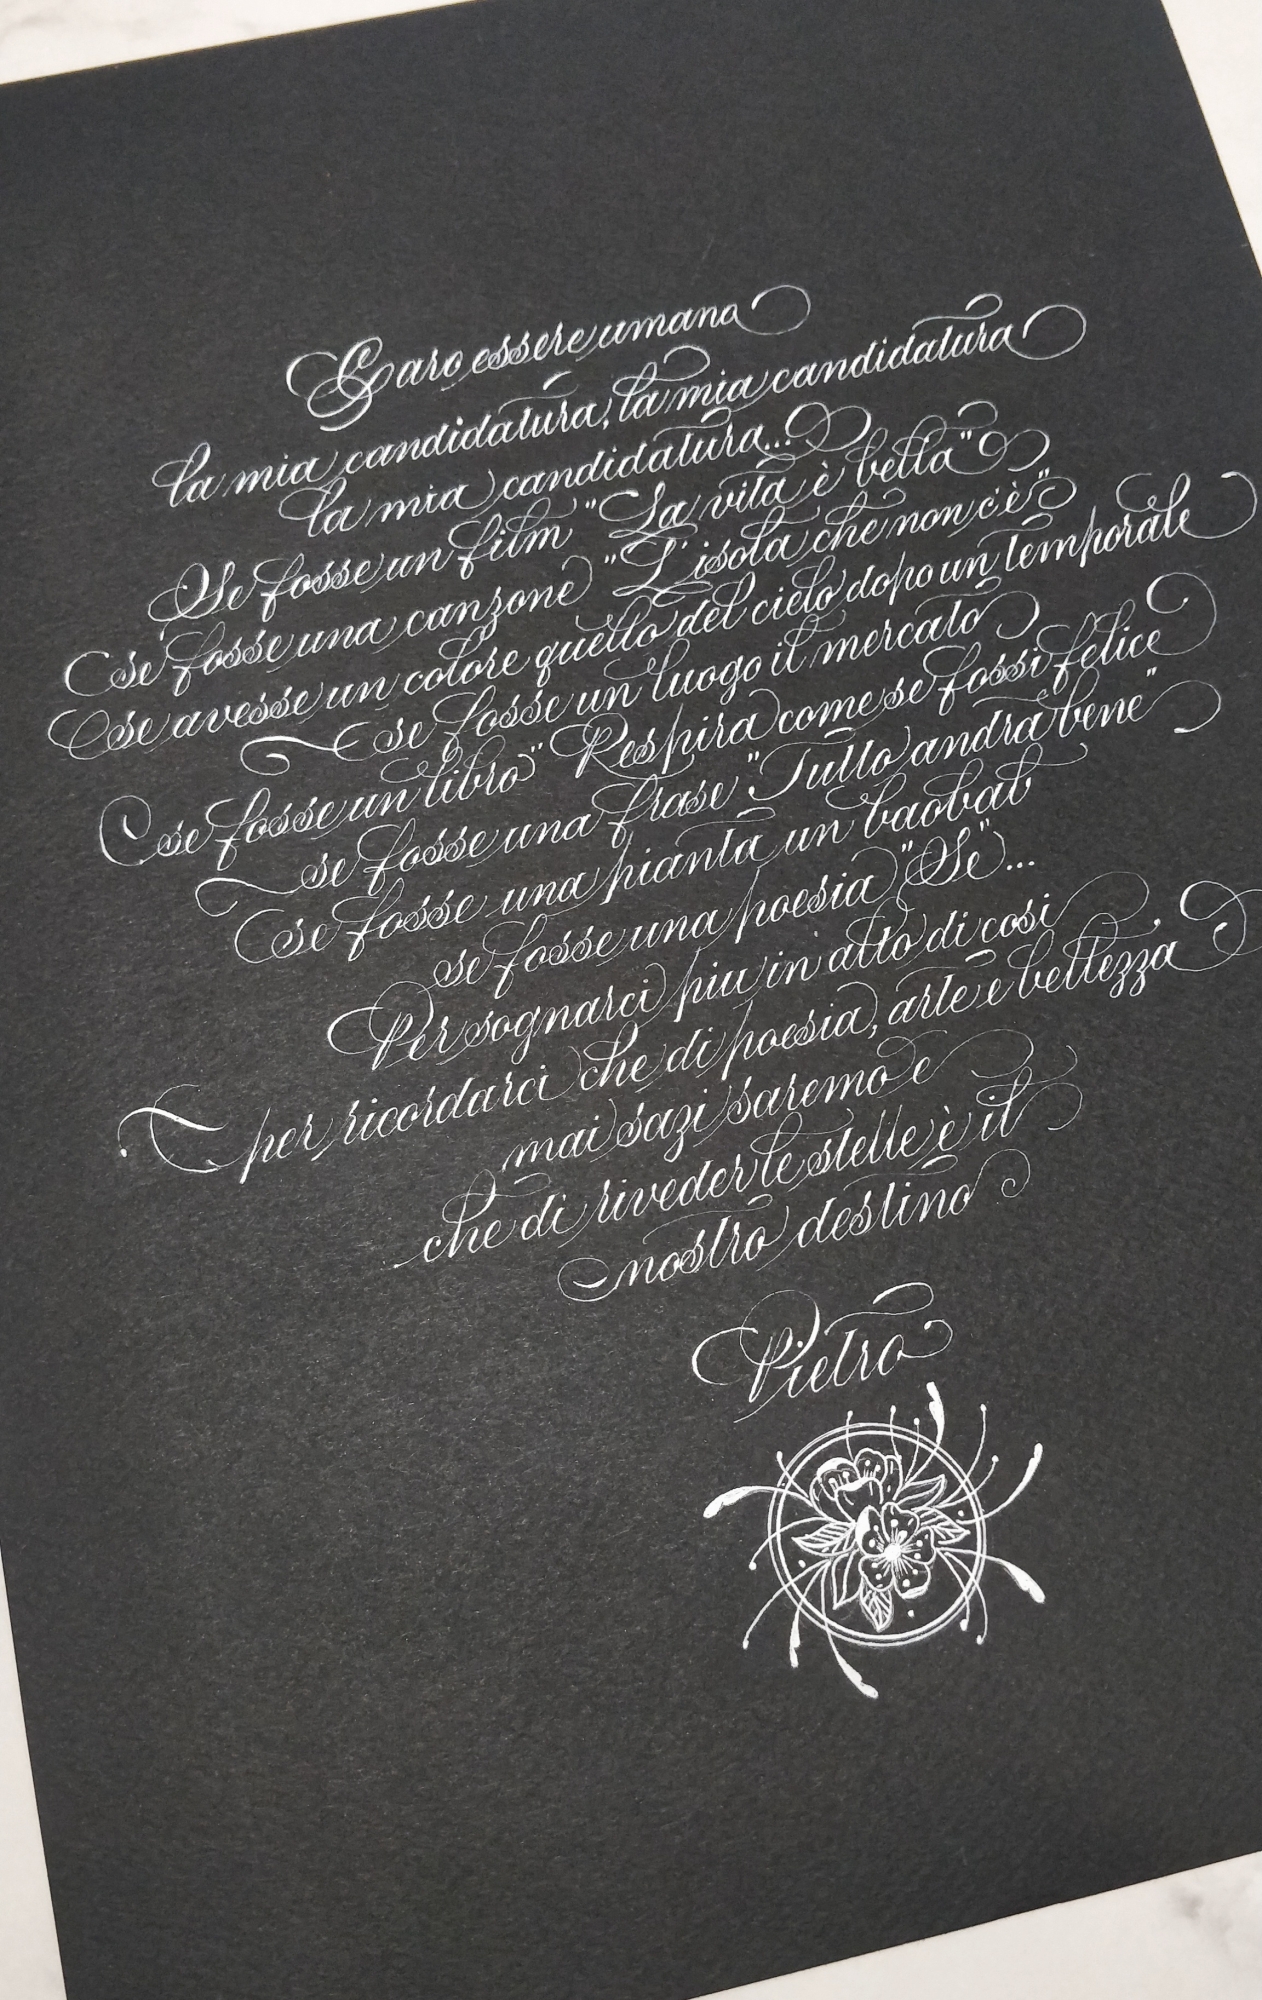 Caro essere umano
la mia candidatura, la mia candidatura
la mia candidatura...
Se fosse un film "La vita è bella"
se fosse una canzone "L'isola che non c'è"
se avesse un colore quello del cielo dopo un temporale
se fosse un luogo il mercato
se fosse un libro "Respira come se fossi felice
se fosse una frase "Tutto andra bene"
se fosse una pianta un baobab
se fosse una poesia "Se"...
Per sognarci piu in alto di cosi
per ricordarci che di poesia, arte e bellezza
mai sazi saremo e
che di riveder le stelle è il
nostro destino
Pietro